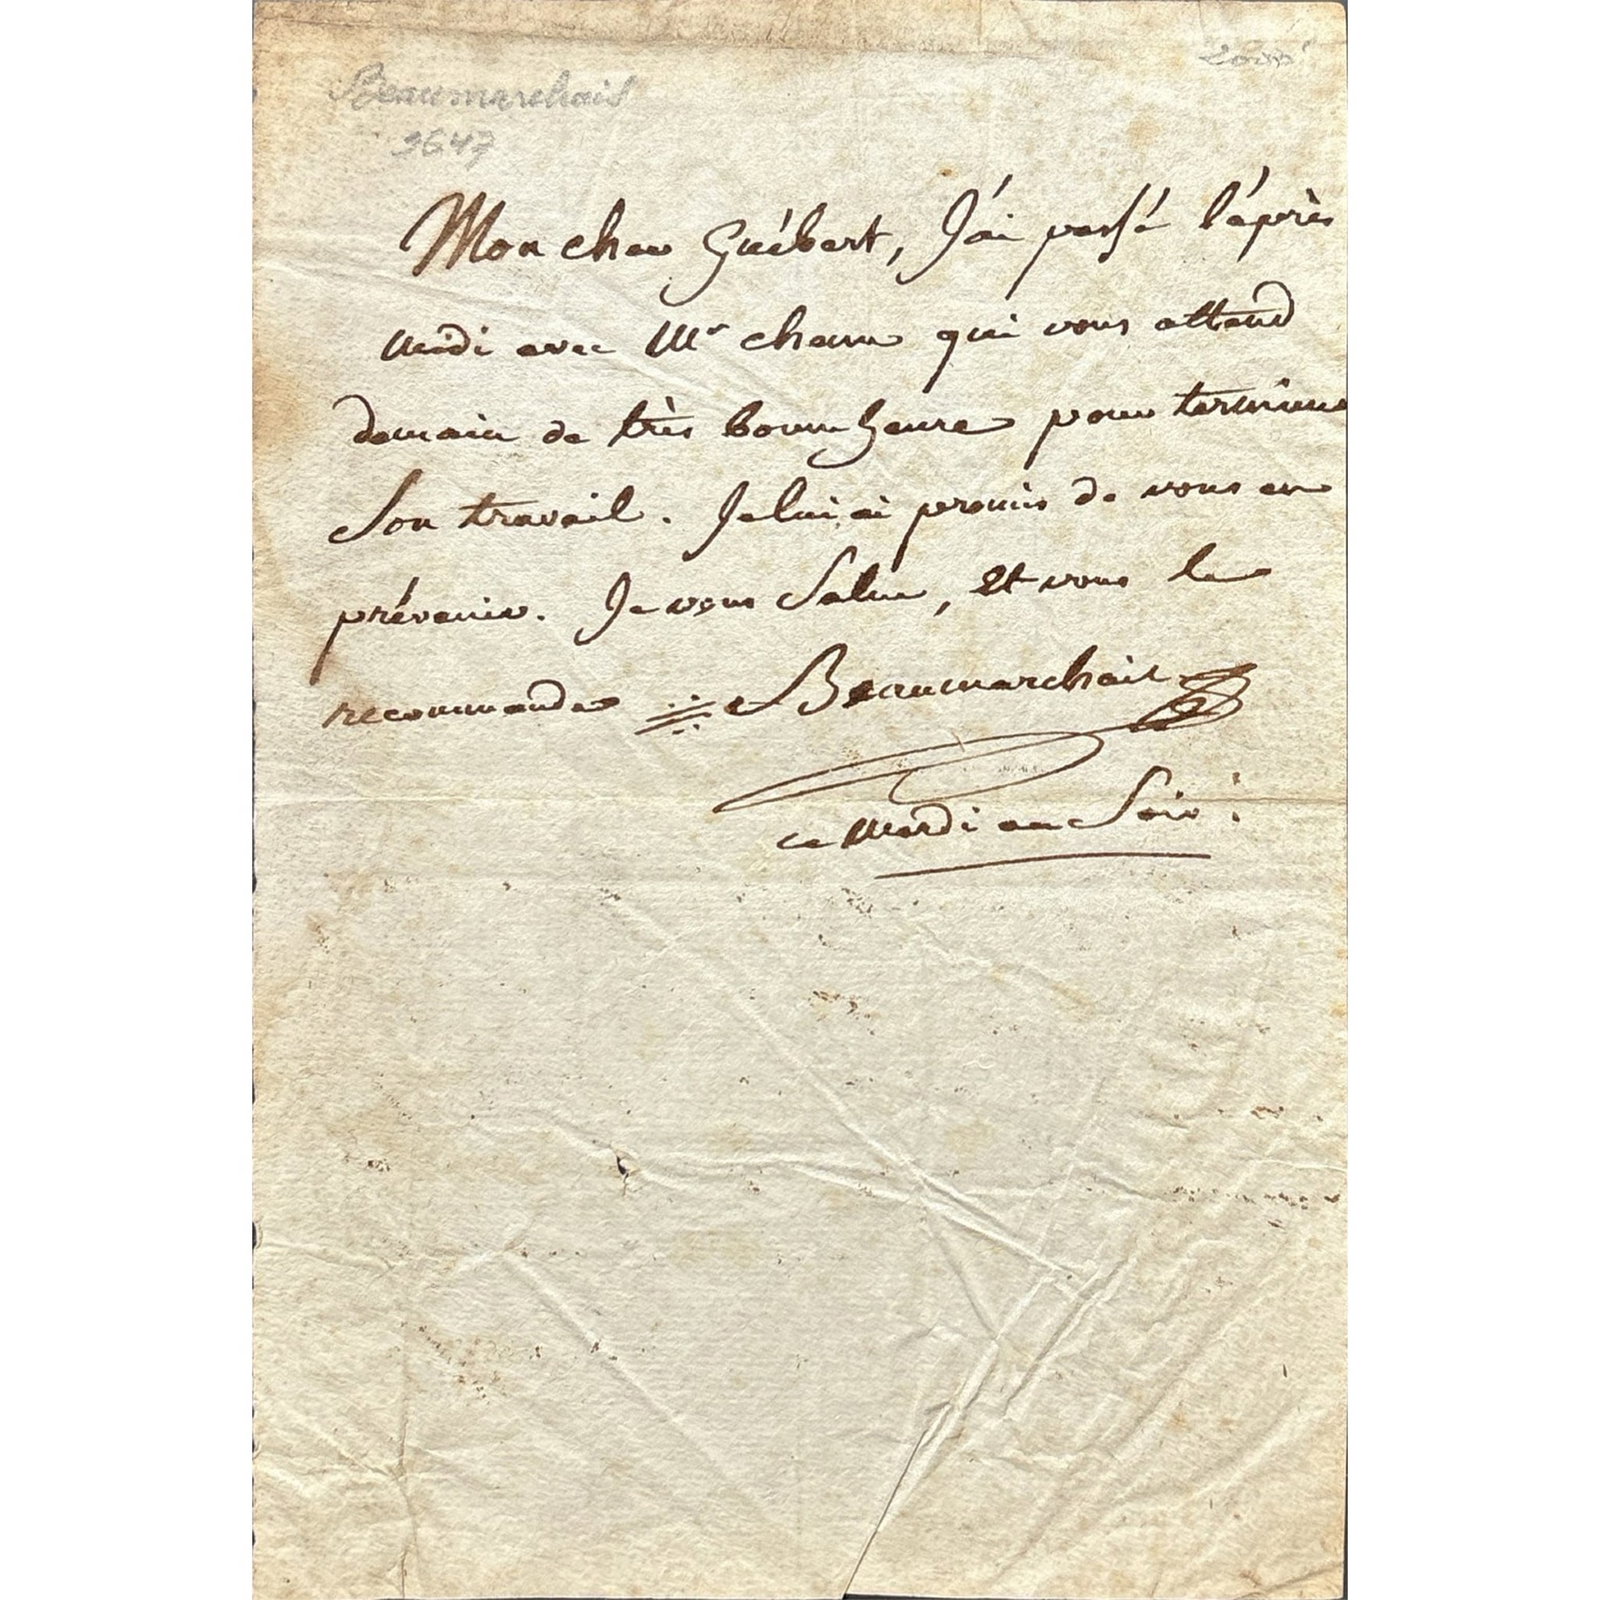 Beaumarchais
3647
Mon cher Guébert, J'ai passé l'après
midi avec Mr qui vous attend
demain de très bonne heure pour terminer
Son travail. Je lui ai promis de vous en
prévenir. Je vous Salue, et vous le
recommande Beaumarchais
ce mardi au Soir